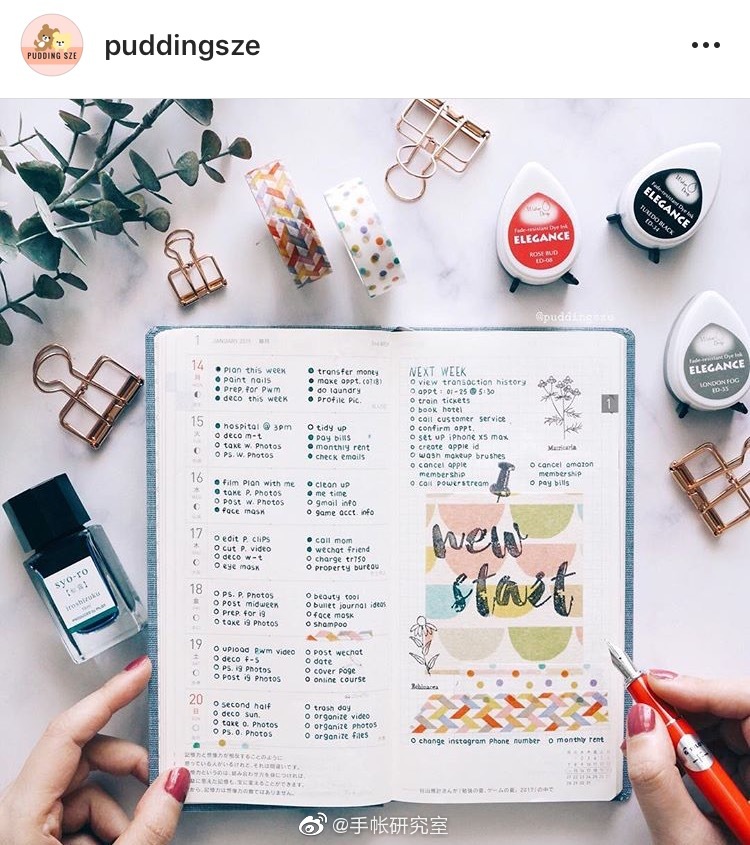 PUDDING SZE
puddingsze
ELEGANCE
ROSE BUD
ED-08
ELEGANCE
TUXEDO BLACK
ELEGANCE
LONDON FOG
@puddingsze
syo-ro
iroshizuku
1
14
plan this week
paint nails
prep. for pwm
deco this week
transfer money
make appt. (0718)
do laundry
profile pic.
15
hospital @ 3pm
deco m-t
take w. photos
ps. w. photos
tidy up
pay bills
monthly rent
check emails
16
film plan with me
take p. photos
post w. photos
face mask
clean up
me time
gmail info
game acct. info
17
edit p. clips
cut p. video
deco w-t
eye mask
call mom
wechat friend
charge tr750
property bureau
18
ps. p. photos
post midweek
prep. for ig
take ig photos
beauty tool
bullet journal ideas
face mask
shampoo
19
upload pwm video
deco f-s
ps. ig photos
post ig photos
post wechat
date
cover page
online course
20
second half
deco sun.
take o. photos
ps. o. photos
trash day
organize video
organize photos
organize files
NEXT WEEK
view transaction history
appt : 01-25 @ 5:30
train tickets
book hotel
call customer service
confirm appt.
set up iphone xs max
create apple id
wash makeup brushes
cancel apple
membership
call powerstream
cancel amazon
membership
pay bills
Matricaria
1
new
start
Echinacea
change instagram phone number
monthly rent
@手帐研究室